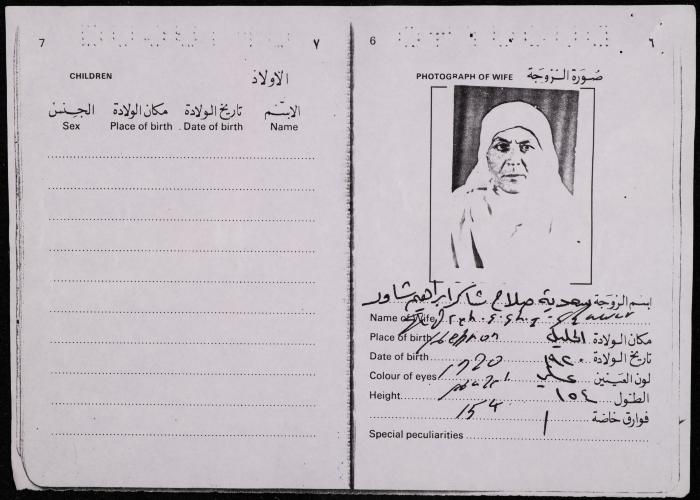 7
٧
CHILDREN
الاولاد
الجنس مكان الولادة تاريخ الولادة الإسم
Sex Place of birth Date of birth Name
6
٦
PHOTOGRAPH OF WIFE صورة الزوجة
اسم الزوجة سعدية صلاح شاكر ابراهيم شاور
Name of Wife
مكان الولادة الخليل
Place of birth Hebron
تاريخ الولادة ١٩٢٠
Date of birth 1920
لون العينين عسلي
Colour of eyes
الطول ١٥٤
Height 154
فوارق خاصة
Special peculiarities